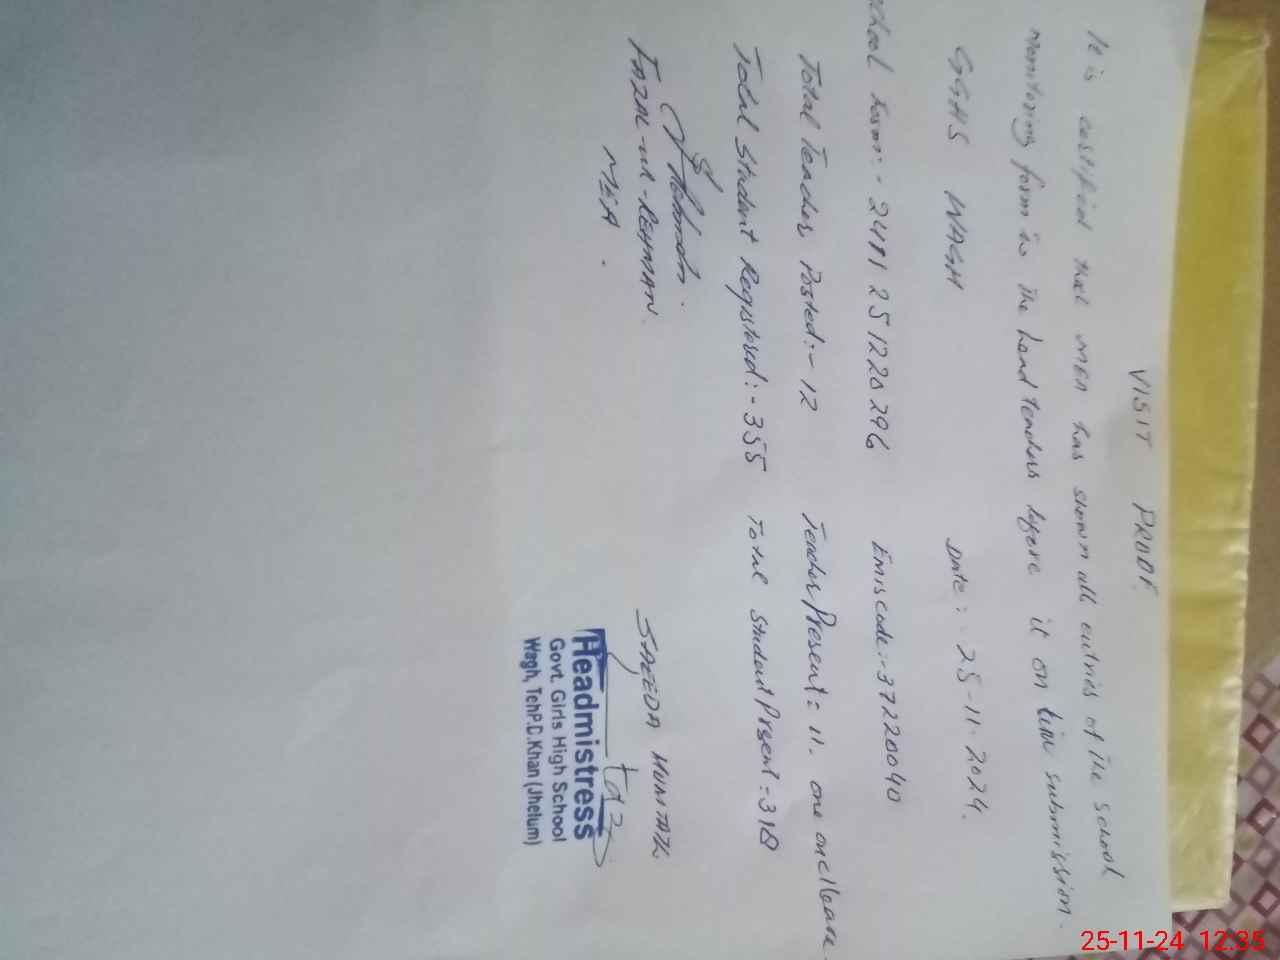 VISIT PROOF.
It is certified that MEA has shown all entries of the school
monitoring form to the head teachers before it on line submission.
GGHS WAGH Date:- 25-11-2024.
chool form:- 2411251220296 Emis code:-37220040
Total Teacher Posted:- 12 Teacher Present = 11. one on c/leave.
Total Student Registered:- 355 Total Student Present = 318
FAZAL-ur-REHMAN. SAEEDA MUMTAZ
MEA.
Headmistress
Govt. Girls High School
Wagh, Teh P.D.Khan (Jhelum)
25-11-24 12:35